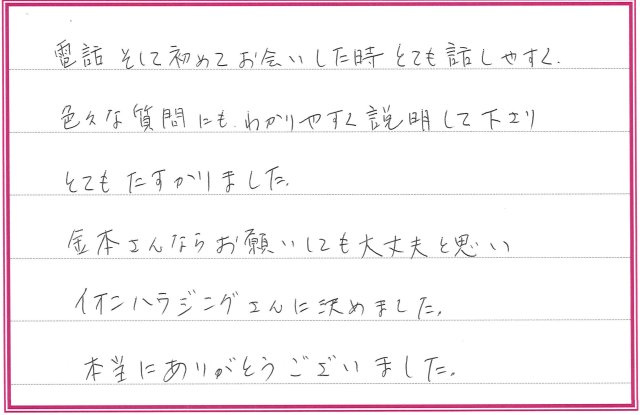 電話そして初めてお会いした時とても話しやすく、
色々な質問にも、わかりやすく説明して下さり
とてもたすかりました。
金本さんならお願いしても大丈夫と思い
イオンハウジングさんに決めました。
本当にありがとうございました。